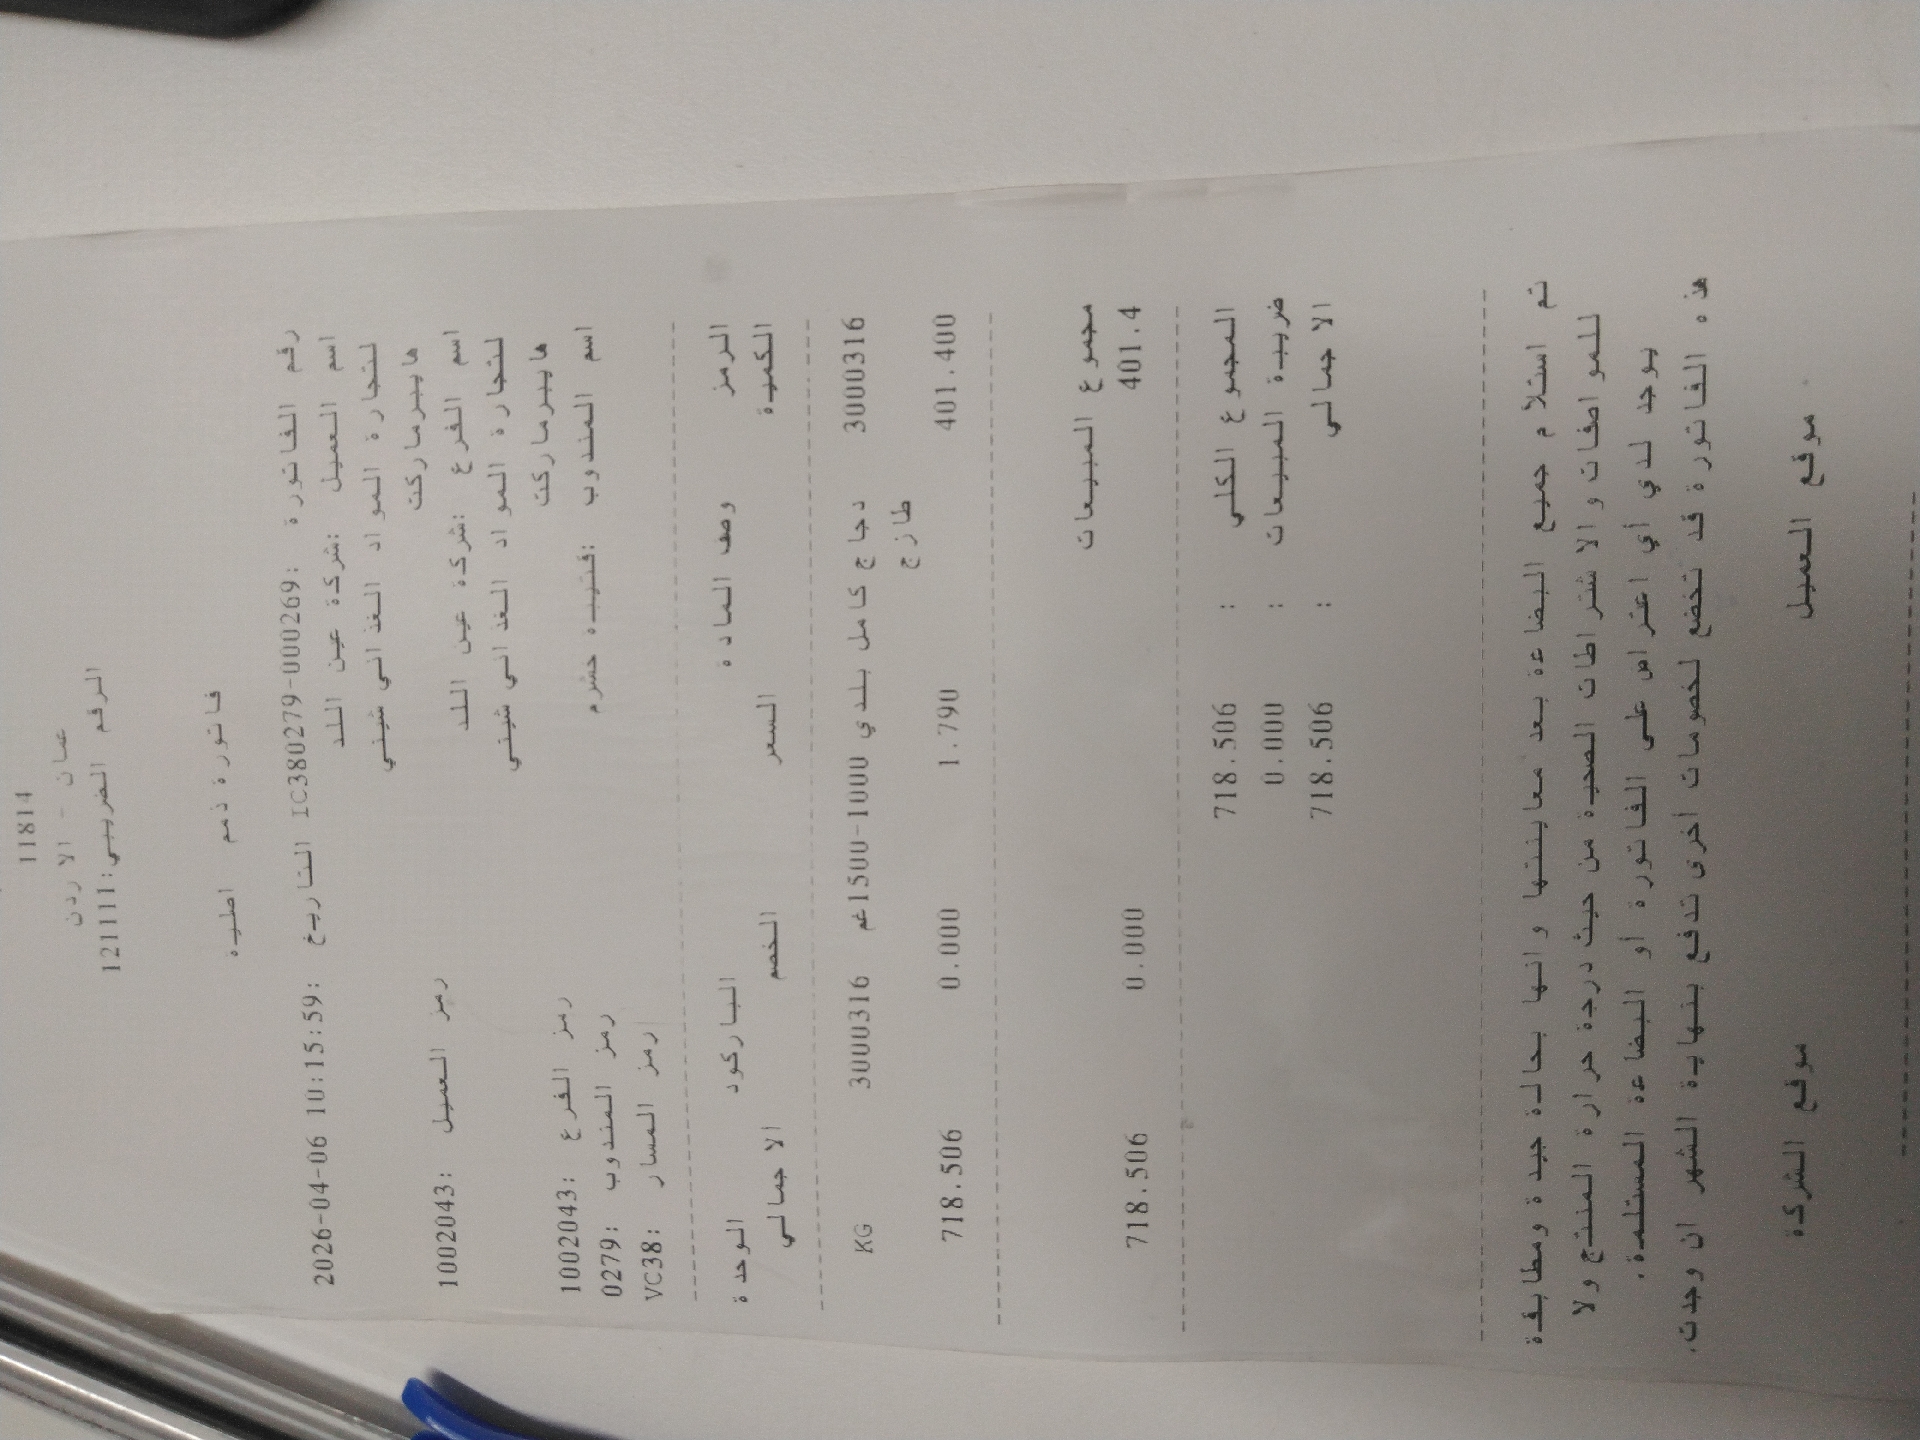 11814
عمان - الاردن
الرقم الضريبي:121111
فاتورة ذمم اصليه
رقم الفاتورة :IC380279-000269 التاريخ :2026-04-06 10:15:59
اسم العميل :شركة عين اللد
لتجارة المواد الغذائي شيني
هايبرماركت
رمز العميل :1002043
اسم الفرع :شركة عين اللد
لتجارة المواد الغذائي شيني
هايبرماركت
رمز الفرع :1002043
اسم المندوب :قتيبه خشرم
رمز المندوب :0279
رمز المسار :VC38
الرمز وصف المادة الباركود الوحدة
الكمية السعر الخصم الاجمالي
3000316 دجاج كامل بلدي 1000-1500غم 3000316 KG
طازج
401.400 1.790 0.000 718.506
مجموع المبيعات
401.4 0.000 718.506
المجموع الكلي : 718.506
ضريبة المبيعات : 0.000
الاجمالي : 718.506
تم استلام جميع البضاعة بعد معاينتها وانها بحالة جيدة ومطابقة
للمواصفات والاشتراطات الصحية من حيث درجة حرارة المنتج ولا
يوجد لدي أي اعتراض على الفاتورة أو البضاعة المستلمة.
هذه الفاتورة قد تخضع لخصومات أخرى تدفع بنهاية الشهر ان وجدت.
موقع العميل موقع الشركة